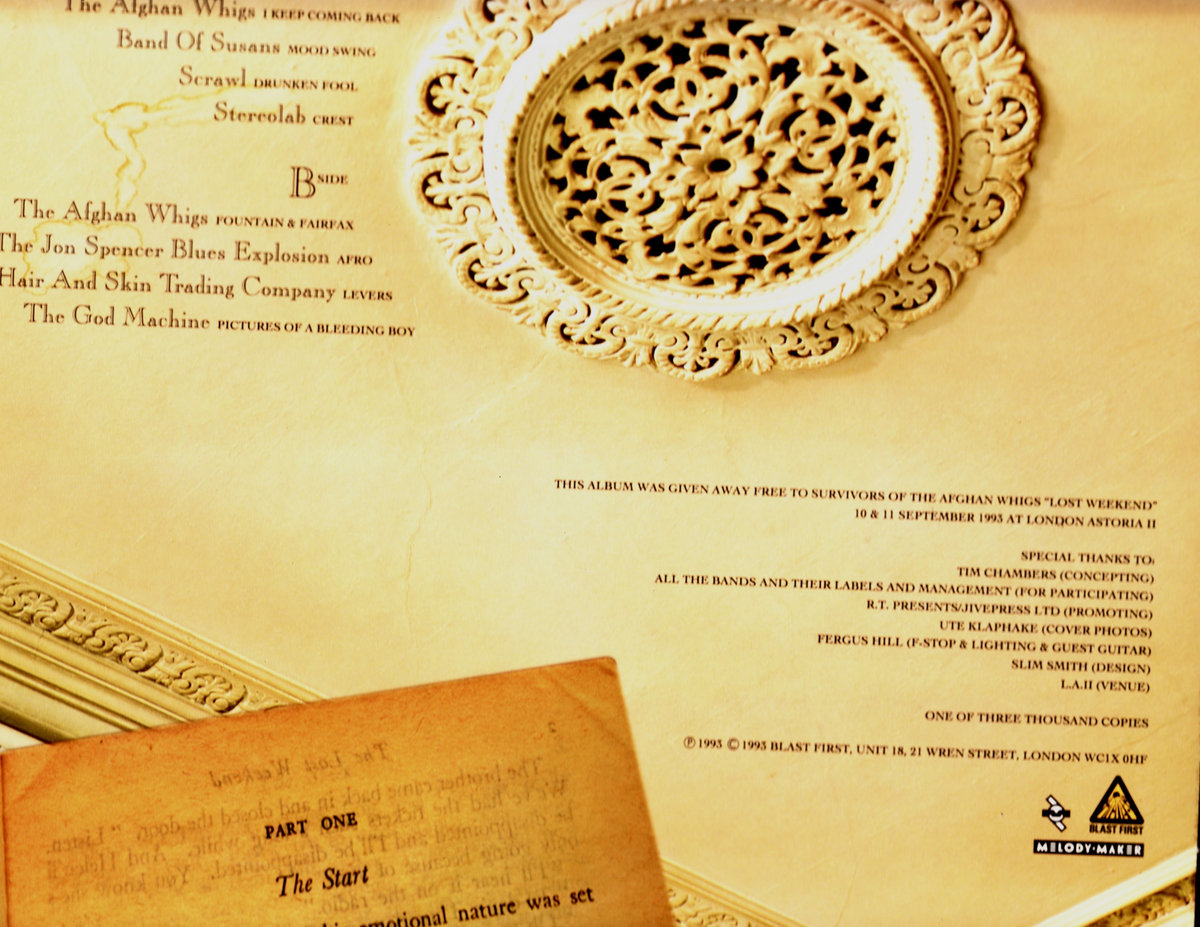 The Afghan Whigs I KEEP COMING BACK
Band Of Susans MOOD SWING
Scrawl DRUNKEN FOOL
Stereolab CREST
B SIDE
The Afghan Whigs FOUNTAIN & FAIRFAX
The Jon Spencer Blues Explosion AFRO
Hair And Skin Trading Company LEVERS
The God Machine PICTURES OF A BLEEDING BOY
THIS ALBUM WAS GIVEN AWAY FREE TO SURVIVORS OF THE AFGHAN WHIGS "LOST WEEKEND"
10 & 11 SEPTEMBER 1993 AT LONDON ASTORIA II
SPECIAL THANKS TO:
TIM CHAMBERS (CONCEPTING)
ALL THE BANDS AND THEIR LABELS AND MANAGEMENT (FOR PARTICIPATING)
R.T. PRESENTS/JIVEPRESS LTD (PROMOTING)
UTE KLAPHAKE (COVER PHOTOS)
FERGUS HILL (F-STOP & LIGHTING & GUEST GUITAR)
SLIM SMITH (DESIGN)
L.A.II (VENUE)
ONE OF THREE THOUSAND COPIES
℗ 1993 © 1993 BLAST FIRST, UNIT 18, 21 WREN STREET, LONDON WC1X 0HF
BLAST FIRST
MELODY·MAKER
2
The Lost Weekend
The brother came back in and closed the door. "Listen.
PART ONE
The Start
emotional nature was set